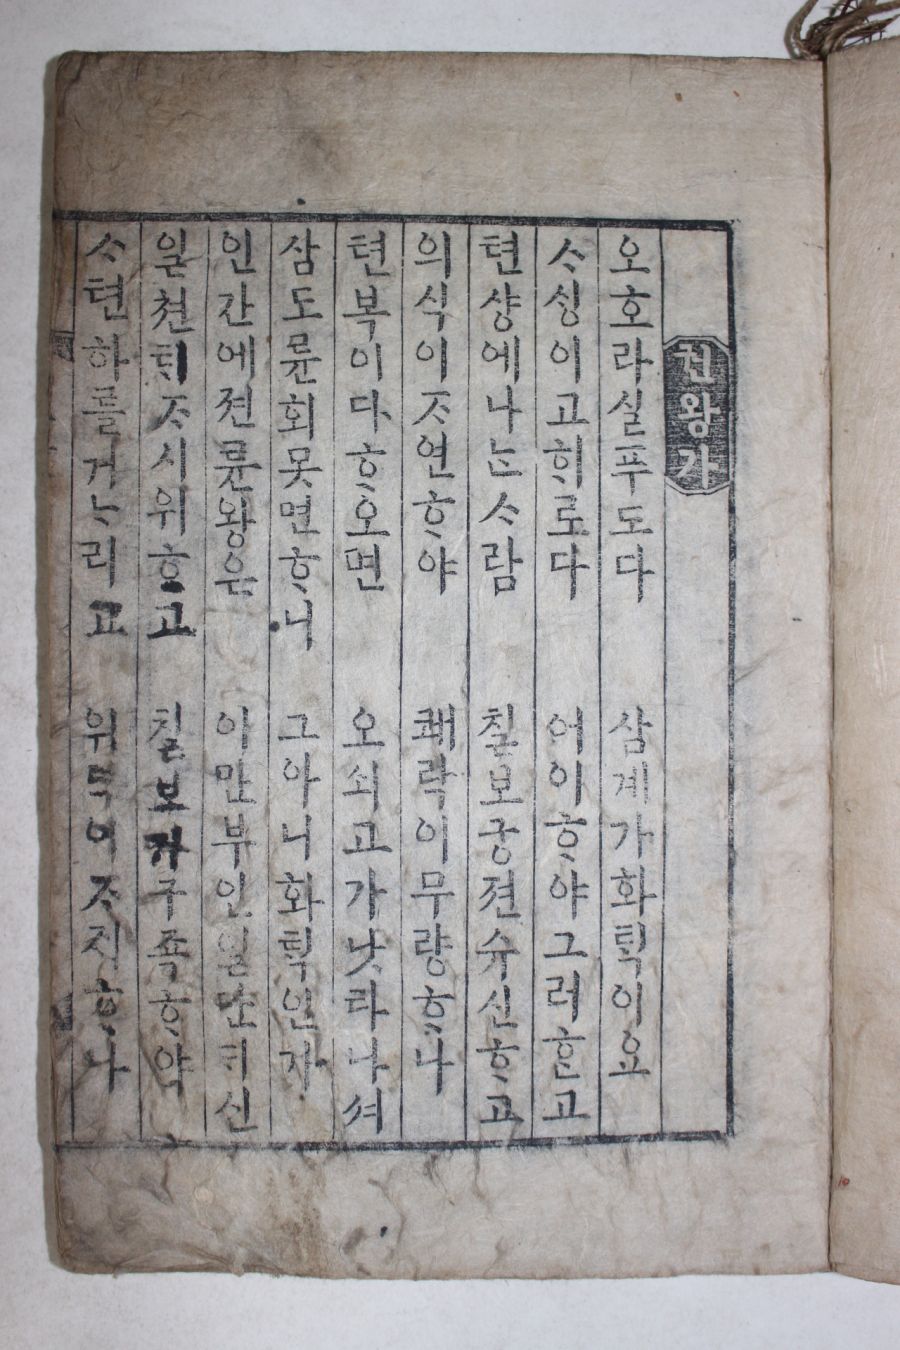 권왕가
오호라실푸도다 삼계가화ᄐᆡᆨ이요
ᄉᆞᄉᆡᆼ이고ᄒᆡ로다 어이ᄒᆞ야그러ᄒᆞᆫ고
텬샹에나ᄂᆞᆫᄉᆞ람 칠보궁젼슈신ᄒᆞ고
의식이ᄌᆞ연ᄒᆞ야 쾌락이무량ᄒᆞ나
텬복이다ᄒᆞ오면 오쇠고가낫타나셔
삼도륜회못면ᄒᆞ니 그아니화ᄐᆡᆨ인가
인간에젼륜왕은 아만부인일만ᄃᆡ신
일쳔ᄐᆡᄌᆞ시위ᄒᆞ고 칠보가구죡ᄒᆞ야
ᄉᆞ텬하를거ᄂᆞ리고 위덕이ᄌᆞ지ᄒᆞ나